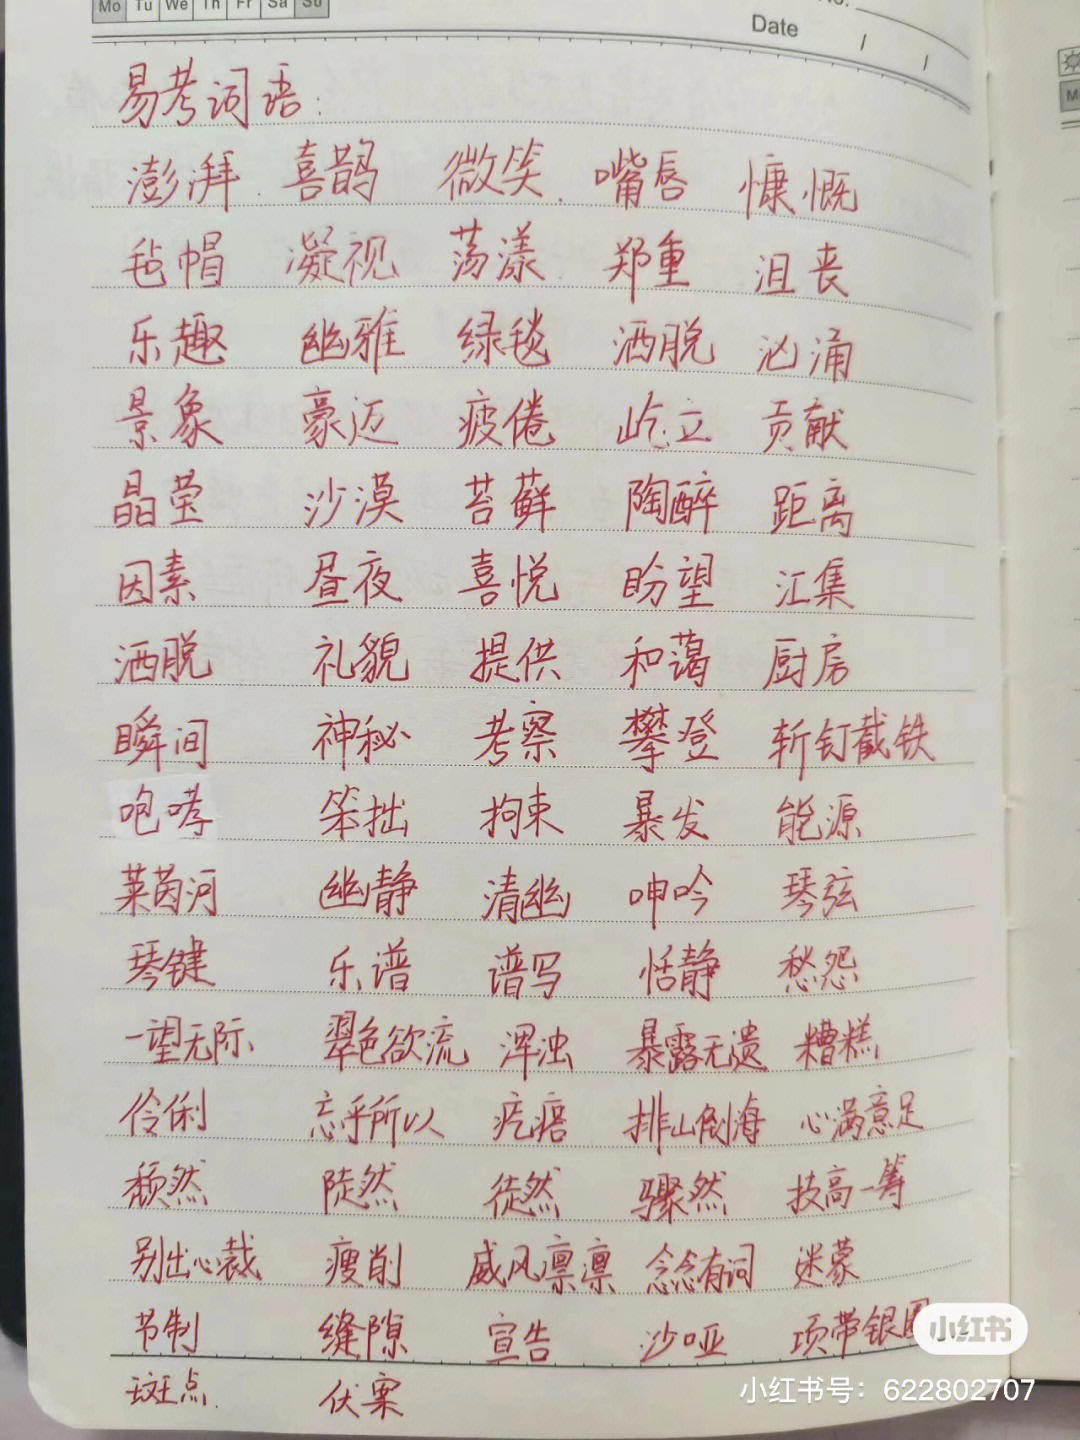 Mo Tu We Th Fr Sa Su
Date / /
易考词语:
澎拜 喜鹊 微笑 嘴唇 慷慨
毡帽 凝视 荡漾 郑重 沮丧
乐趣 幽雅 绿毯 洒脱 汹涌
景象 豪迈 疲倦 屹立 贡献
晶莹 沙漠 苔藓 陶醉 距离
因素 昼夜 喜悦 盼望 汇集
洒脱 礼貌 提供 和蔼 厨房
瞬间 神秘 考察 攀登 斩钉截铁
咆哮 笨拙 拘束 暴发 能源
莱茵河 幽静 清幽 呻吟 琴弦
琴键 乐谱 谱写 恬静 愁怨
一望无际 翠色欲流 浑浊 暴露无遗 糟糕
伶俐 忘乎所以 疙瘩 排山倒海 心满意足
颓然 陡然 徒然 骤然 技高一筹
别出心裁 瘦削 威风凛凛 念念有词 迷蒙
节制 缝隙 宣告 沙哑 项带银圈
斑点 伏案
小红书
小红书号:622802707